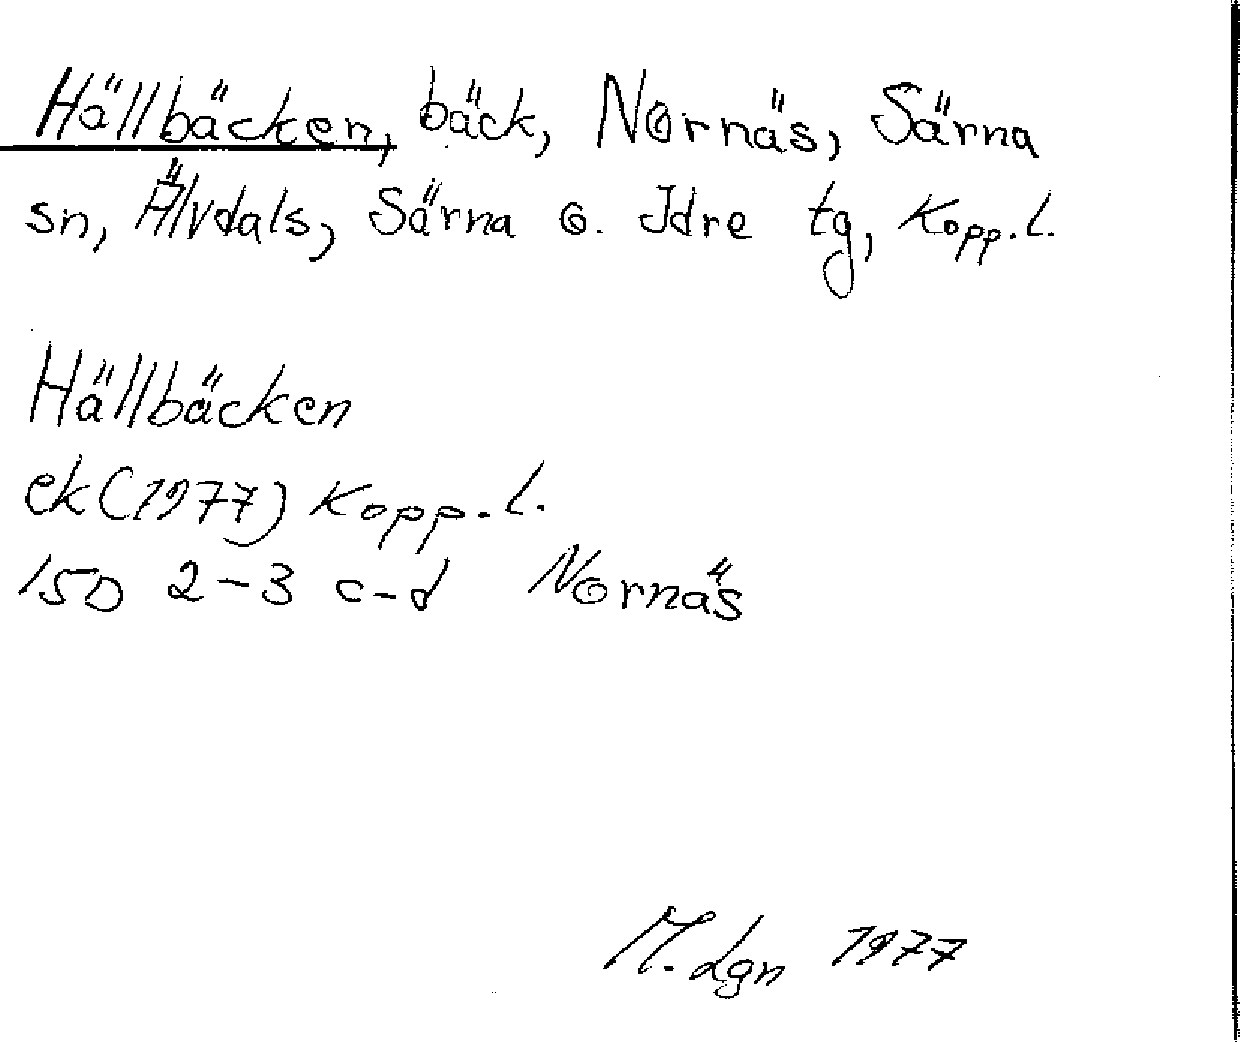 Hällbäcken, bäck, Nornäs, Särna
sn, Älvdals, Särna o. Idre tg, Kopp. l.
Hällbäcken
ek (1977) Kopp. l.
15D 2-3 c-d Nornäs
M. Lgn 1977